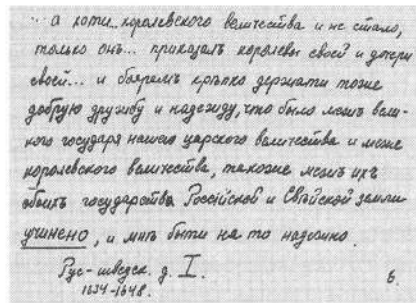 ... а хотя... королевского величества и не стало,
только онъ... приказалъ королевы своей и дочери
своей... и бояремъ крѣпко держати тоже
добрую дружбу и надежду, что было межъ вели-
кого государя нашего царского величества и меже
королевского величества, такоже межъ ихъ
обоихъ государства Россiйской и Свѣйской земли
учинено, и мнѣ быти на то надежно.
Рус-шведск. д. I.
1634-1648.
6.